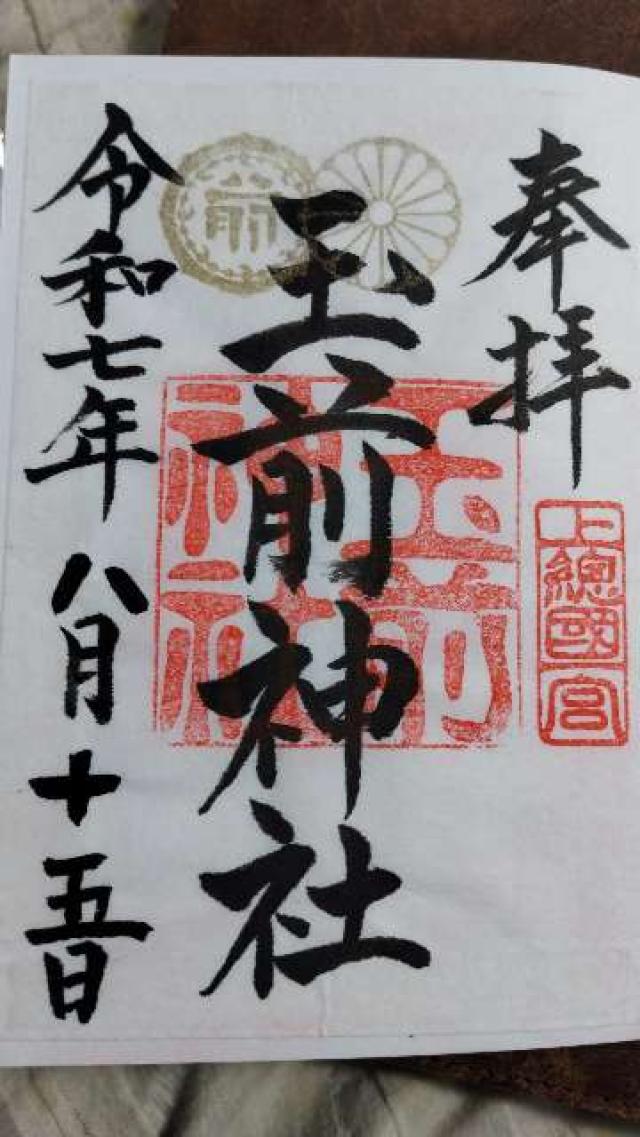 奉拝
上總國一宮
玉前神社
玉前神社
前
令和七年八月十五日